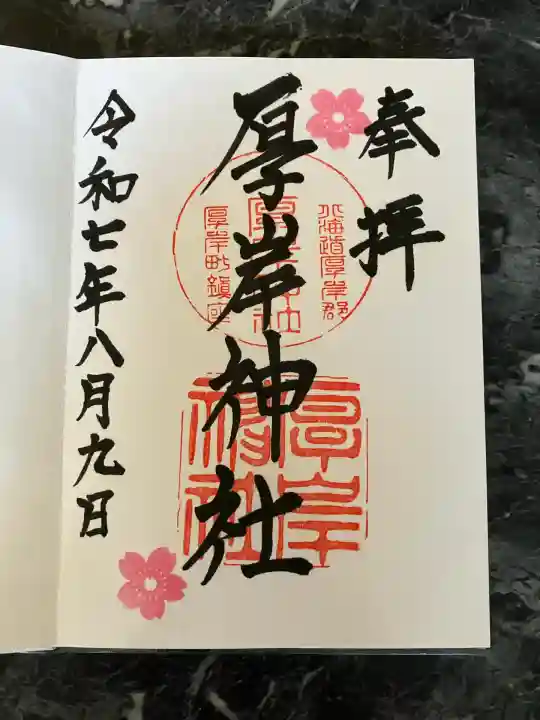 奉拝
厚岸神社
北海道厚岸郡
厚岸神社
厚岸町鎮座
厚岸
神社
令和七年八月九日